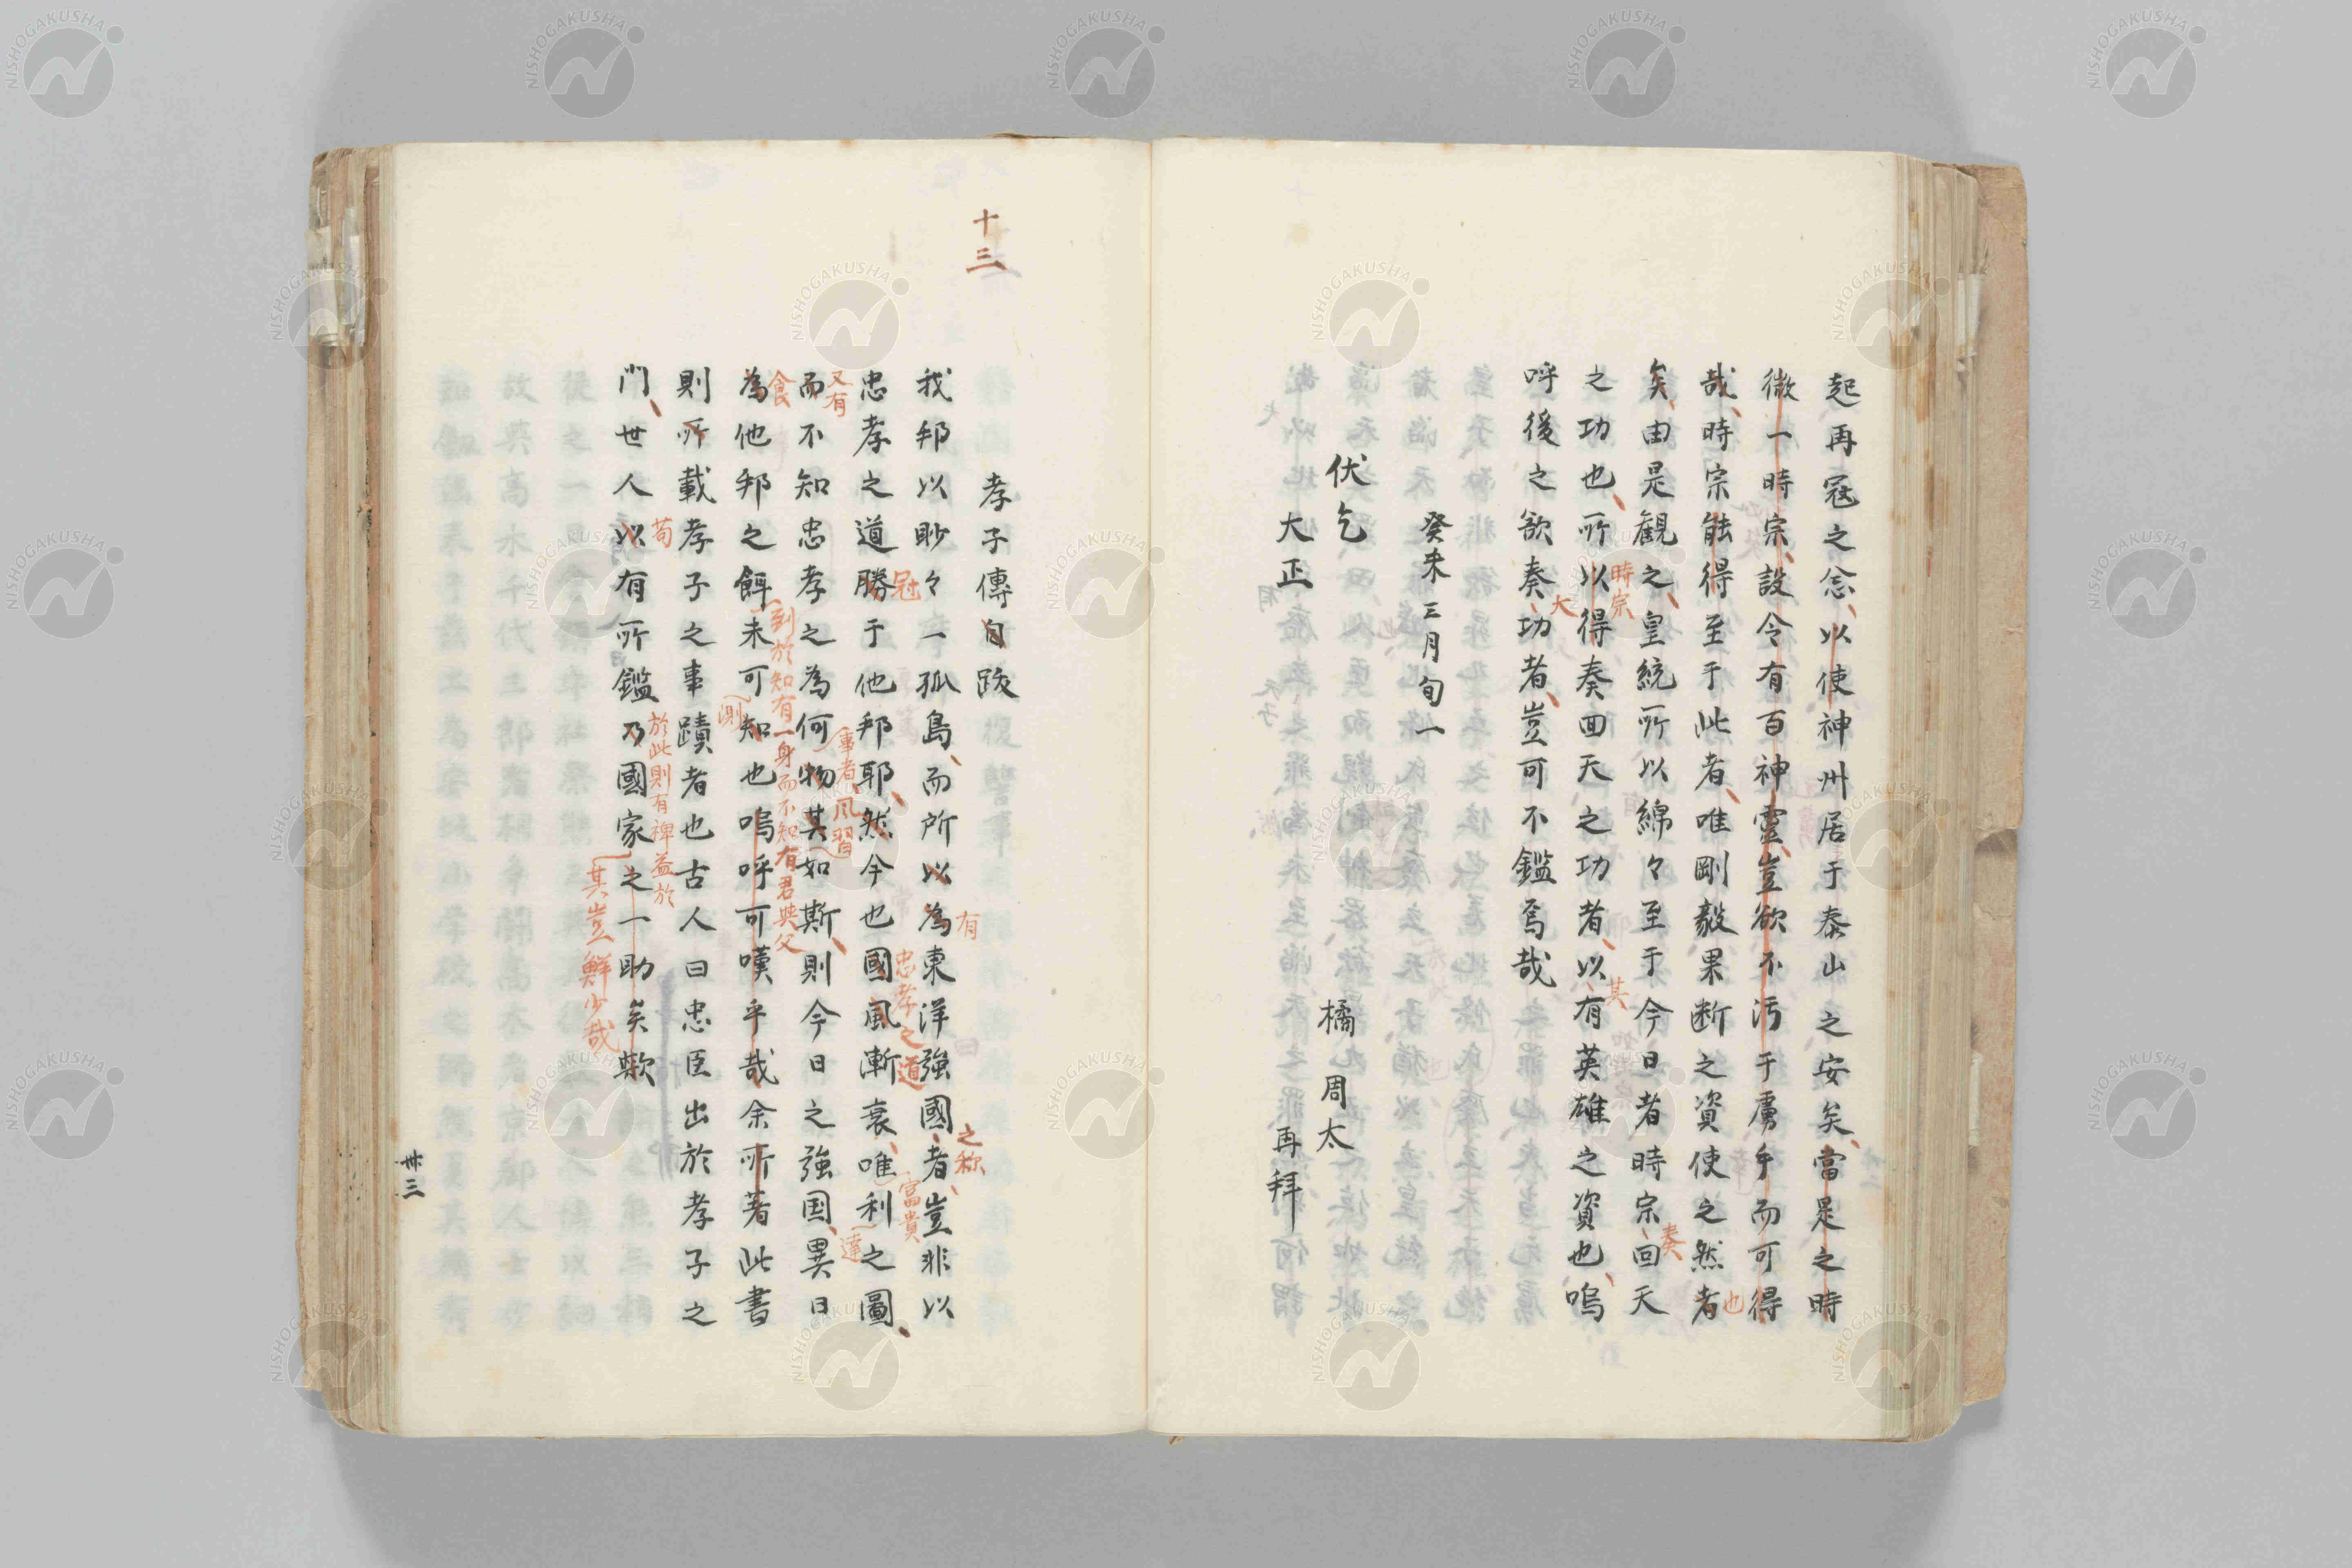 起再冦之念、以使神州居于泰山之安矣、當是之時
微一時宗、設令有百神靈、豈欲不汚于虜手而可得
哉、時宗能得至于此者、唯剛毅果断之資使之然者
也
矣、由是観之、皇統所以綿々至于今日者時宗回天
奏
之功也、所以得奏回天之功者、以有英雄之資也、嗚
時宗
其
呼後之欲奏功者、豈可不鑑焉哉
大
癸未三月旬一
伏乞
橘周太
大正
再拜
十三
孝子傳自跋
我邦以眇々一孤島、而所以為東洋強國者、豈非以
有
之称
忠孝之道勝于他邦耶、然今也國風漸衰、唯利之圖、
冠
忠孝之道
富貴
而不知忠孝之為何物其如斯、則今日之強国、異日
又有
事者、風習
達
為他邦之餌未可知也嗚呼可嘆乎哉余所著此書
食
到於知有一身而不知有君與父
則所載孝子之事蹟者也古人曰忠臣出於孝子之
測
門、世人以有所鑑乃國家之一助矣歟
苟
於此則有裨益於
其豈鮮少哉
卅三
NISHOGAKUSHA